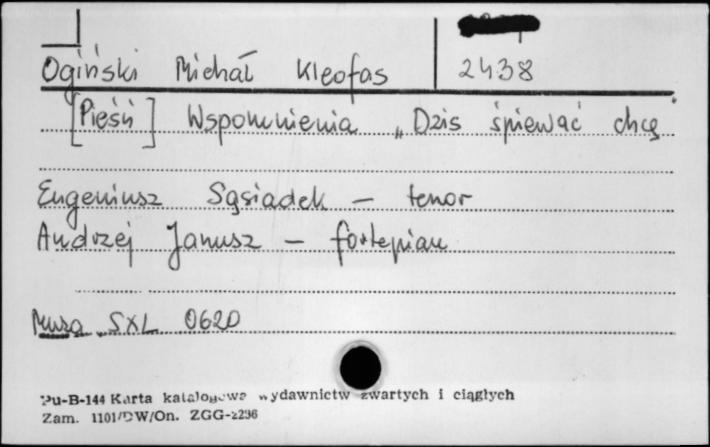 Ogiński Michał Kleofas 2438
[Pieśń] Wspomnienia „Dziś śpiewać chcę"
Eugeniusz Sąsiadek - tenor
Andrzej Janusz - fortepian
Muza SXL 0620
Pu-B-144 Karta katalogowa wydawnictw zwartych i ciągłych
Zam. 1101/DW/On. ZGG-2236